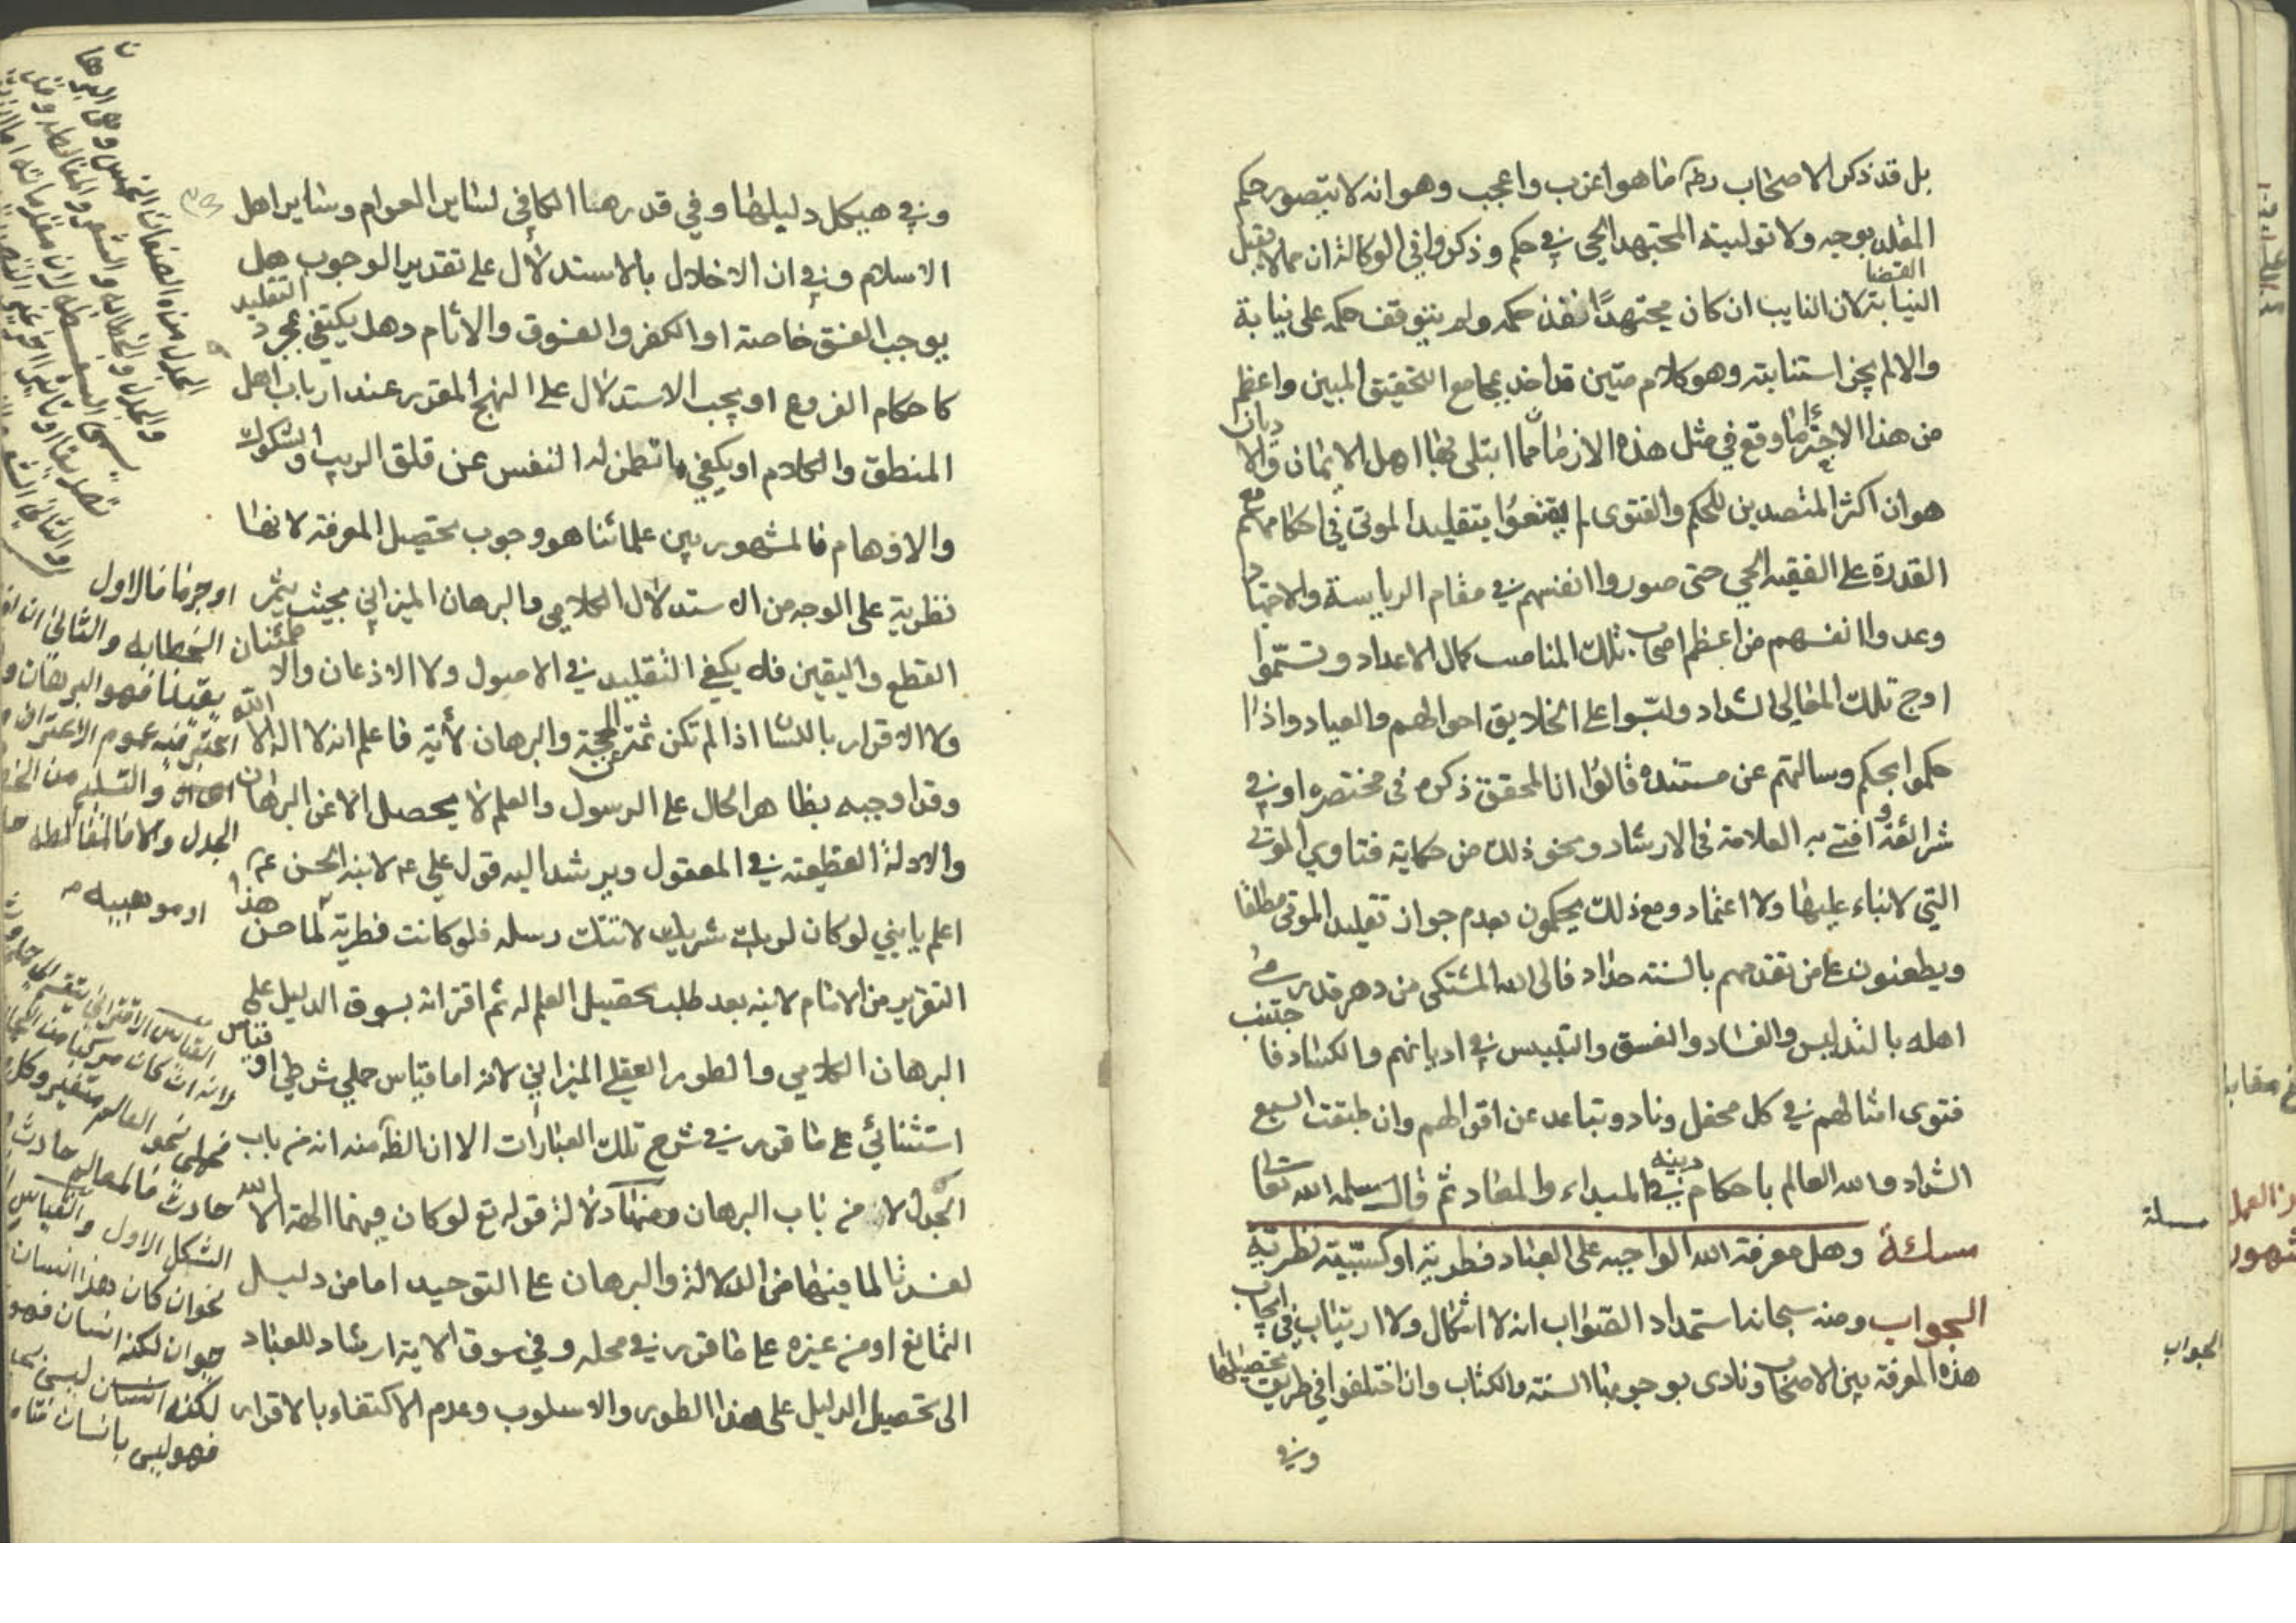 بل قد ذكر الاصحاب رضه ما هو اعزب واعجب وهو انه لا يتصور حكم
المقلد بوجه ولا تولية المجتهد الحي في حكم وذكروا في الوكالة ان مما لا يقبل
النيابة القضا لان النايب ان كان مجتهدًا نفذ حكمه ولم يتوقف حكمه على نيابة
والا لم يجز استنابته وهو كلام متين قد اخذ بمجامع التحقيق المبين واعظم
من هذا الاجترا ما وقع في مثل هذه الازمان مما ابتلى بها اهل الايمان والاديان
هو ان اكثر المتصدين للحكم والفتوى لم يقنعوا بتقليد الموتى في احكامهم مع
القدرة على الفقيه الحي حتى صوروا انفسهم في مقام الرياسة والاجتهاد
وعدوا انفسهم من اعظم اصحاب تلك المناصب كمال الاعداد وتسمّوا
اوج تلك المعالي الشداد ولبّسوا على الخلايق احوالهم والعباد واذا
حكموا بحكم وسالتهم عن مستنده قالوا ان المحقق ذكره في مختصره او في
شرائعه وافتى به العلامة في الارشاد ونحو ذلك من حكاية فتاوي الموتى
التي لا بناء عليها ولا اعتماد ومع ذلك يحكمون بعدم جواز تقليد الموتى مطلقا
ويطعنون على من تقدمهم بالسنة حداد فالى الله المشتكى من دهر قد رمى
اهله بالتدليس والفساد والفسق والتلبيس في اديانهم والكساد فاجتنب
فتوى امثالهم في كل محفل وناد وتباعد عن اقوالهم وان طبقت السبع
الشداد والله العالم باحكام دينه في المبداء والمعاد ثم قال سلمه الله تعالى
مسئلة وهل معرفة الله الواجبه على العباد فطرية او كسبيّة نظريّة
الجواب ومنه سبحانه استمداد الصواب انه لا اشكال ولا ارتياب في ايجاب
هذه المعرفة بين الاصحاب ونادى بوجوبها السنة والكتاب وان اختلفوا في طريق تحصيلها
وفي
مسلة
الجواب
وفي هيكل دليلها وفي قدرها الكافي لساير العوام وساير اهل
الاسلام وفي ان الاخلال بالاستدلال على تقدير الوجوب هل
يوجب الفسق خاصة او الكفر والفسوق والاثام وهل يكتفي بمجرد التقليد
كاحكام الفروع او يجب الاستدلال على النهج المقرر عند ارباب اهل
المنطق والكلام او يكفي ما تطمئن له النفس عن قلق الريب والشكوك
والاوهام فالمشهور بين علمائنا هو وجوب تحصيل المعرفة لانها
نظرية على الوجه من الاستدلال الكلامي والبرهان الميزاني بحيث يثمر
القطع واليقين فلا يكفي التقليد في الاصول ولا الاذعان والاطمئنان
ولا الاقرار باللسان اذا لم تكن ثمة الحجة والبرهان لأية فاعلم انه لا اله الا الله
وقد اوجبه بظاهر الحال على الرسول والعلم لا يحصل الا عن البرهان
والادلة القطيعة في المعقول ويرشد اليه قول علي ع لابنه الحسن ع
اعلم يا بني لو كان لربك شريك لاتتك رسله فلو كانت فطرية لما حسن هذا
التقرير من الامام لابنه بعد طلب تحصيل العلم له ثم اقترانه بسوق الدليل على
البرهان الكلامي والطور العقلي الميزاني لانه اما قياس حملي شرطي او قياس
استثنائي على ما قرر في شرح تلك العبارات الا ان الظآ منه انه من باب
الجدل لا من باب البرهان ومنها دلالة قوله تع لو كان فيهما الهة الا الله
لفسدتا لما فيها من الدلالة والبرهان على التوحيد اما من دليل
التمانع او من غيره على ما قرر في محله وفي سوق الاية ارشاد للعباد
الى تحصيل الدليل على هذا الطور والاسلوب وعدم الاكتفاء بالاقرار
او جزما فالاول
الخطابه والثاني ان
يقينا فهو البرهان و
اعتبر فيه عموم الاعتراف
والتسليم من
الجدل والا فالمغالطه
او موهبيه
القياس الاقتراني
لانه ان كان مركبا من
فحملي نحو العالم متغير وكل
حادث فالعالم حادث
الشكل الاول والقياس
نحو ان كان هذا انسان
حيوان لكنه انسان فهو
لكنه انسان ليس
فهو ليس بانسان